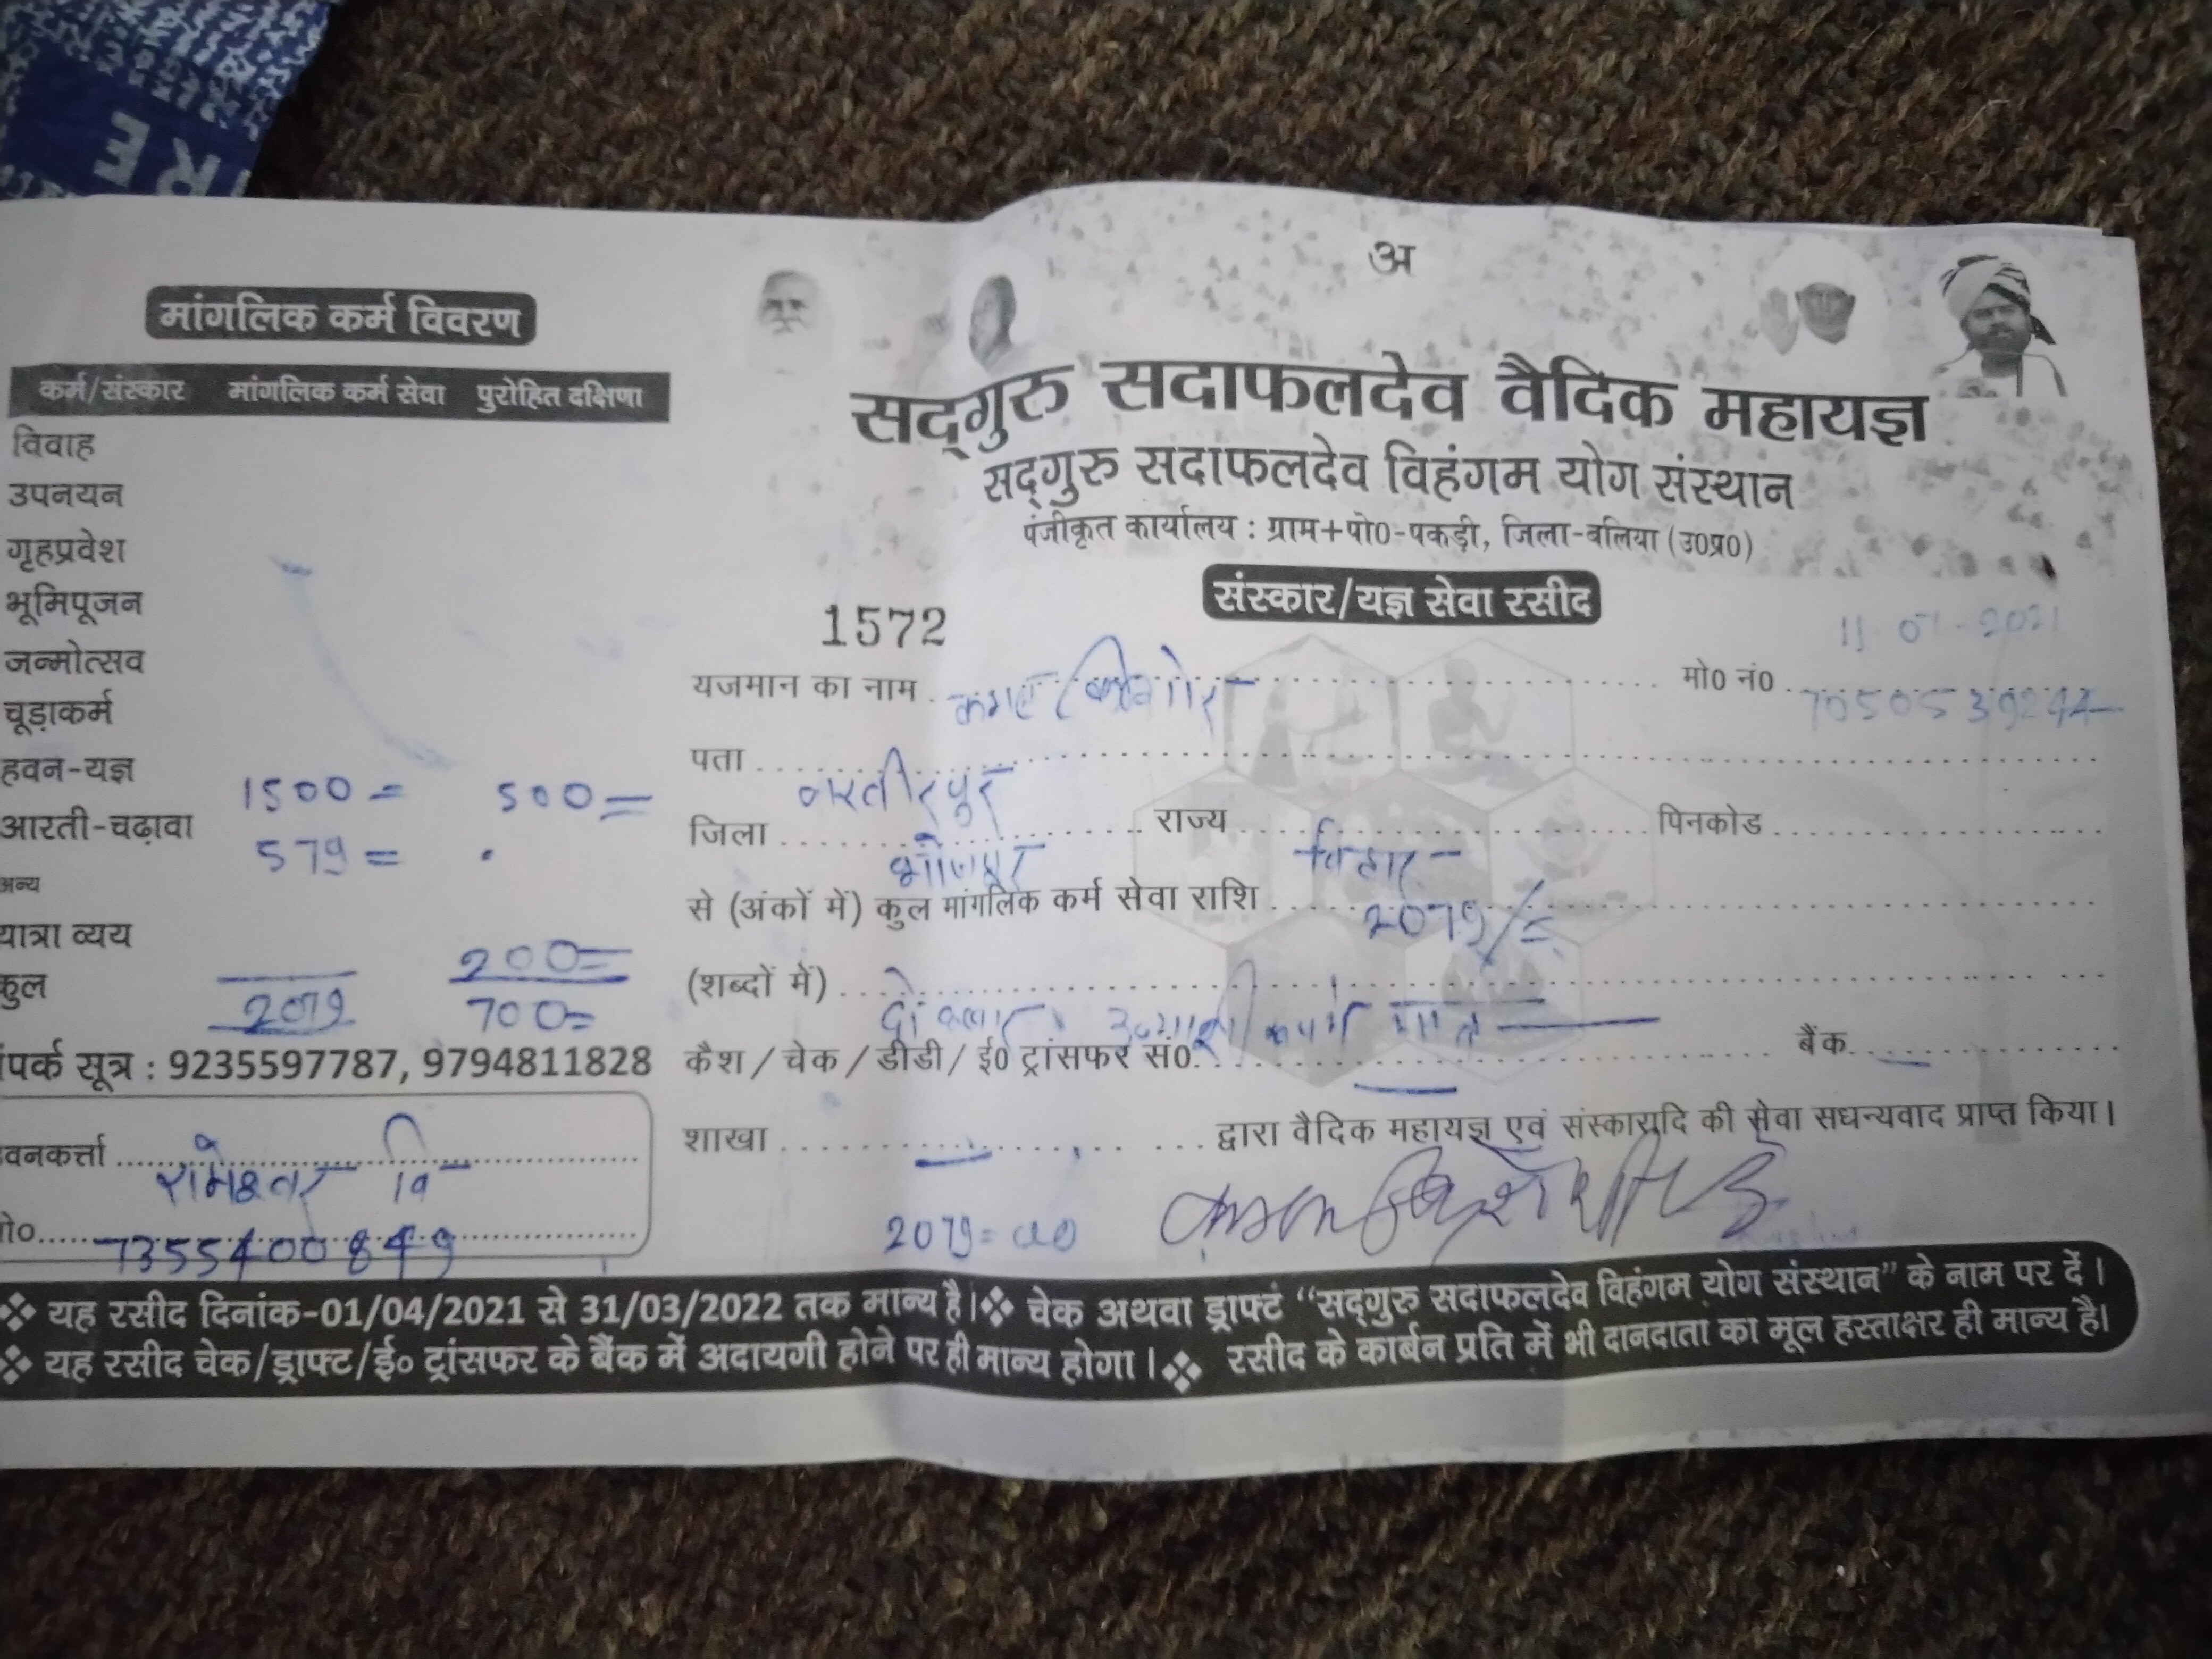 RE
अ
मांगलिक कर्म विवरण
कर्म/संस्कार मांगलिक कर्म सेवा पुरोहित दक्षिणा
विवाह
उपनयन
गृहप्रवेश
भूमिपूजन
जन्मोत्सव
चूड़ाकर्म
हवन-यज्ञ 1500= 500=
आरती-चढ़ावा 579=
अन्य
यात्रा व्यय 200=
कुल 2079 700=
पर्क सूत्र : 9235597787, 9794811828
वनकर्त्ता रामेश्वर
मो० 7355400849
सद्गुरु सदाफलदेव वैदिक महायज्ञ
सद्गुरु सदाफलदेव विहंगम योग संस्थान
पंजीकृत कार्यालय : ग्राम+पो0-पकड़ी, जिला-बलिया (उ0प्र0)
संस्कार/यज्ञ सेवा रसीद
1572
यजमान का नाम मो0 नं0
पता
जिला भोजपुर राज्य बिहार पिनकोड
से (अंकों में) कुल मांगलिक कर्म सेवा राशि 2079/=
(शब्दों में) दो हजार उन्यासी रुपये मात्र
कैश / चेक / डीडी/ ई0 ट्रांसफर सं0. बैंक
शाखा द्वारा वैदिक महायज्ञ एवं संस्कारादि की सेवा सधन्यवाद प्राप्त किया।
2079=00
❖ यह रसीद दिनांक-01/04/2021 से 31/03/2022 तक मान्य है।❖ चेक अथवा ड्राफ्ट “सद्गुरु सदाफलदेव विहंगम योग संस्थान” के नाम पर दें।
❖ यह रसीद चेक/ड्राफ्ट/ई० ट्रांसफर के बैंक में अदायगी होने पर ही मान्य होगा।❖ रसीद के कार्बन प्रति में भी दानदाता का मूल हस्ताक्षर ही मान्य है।